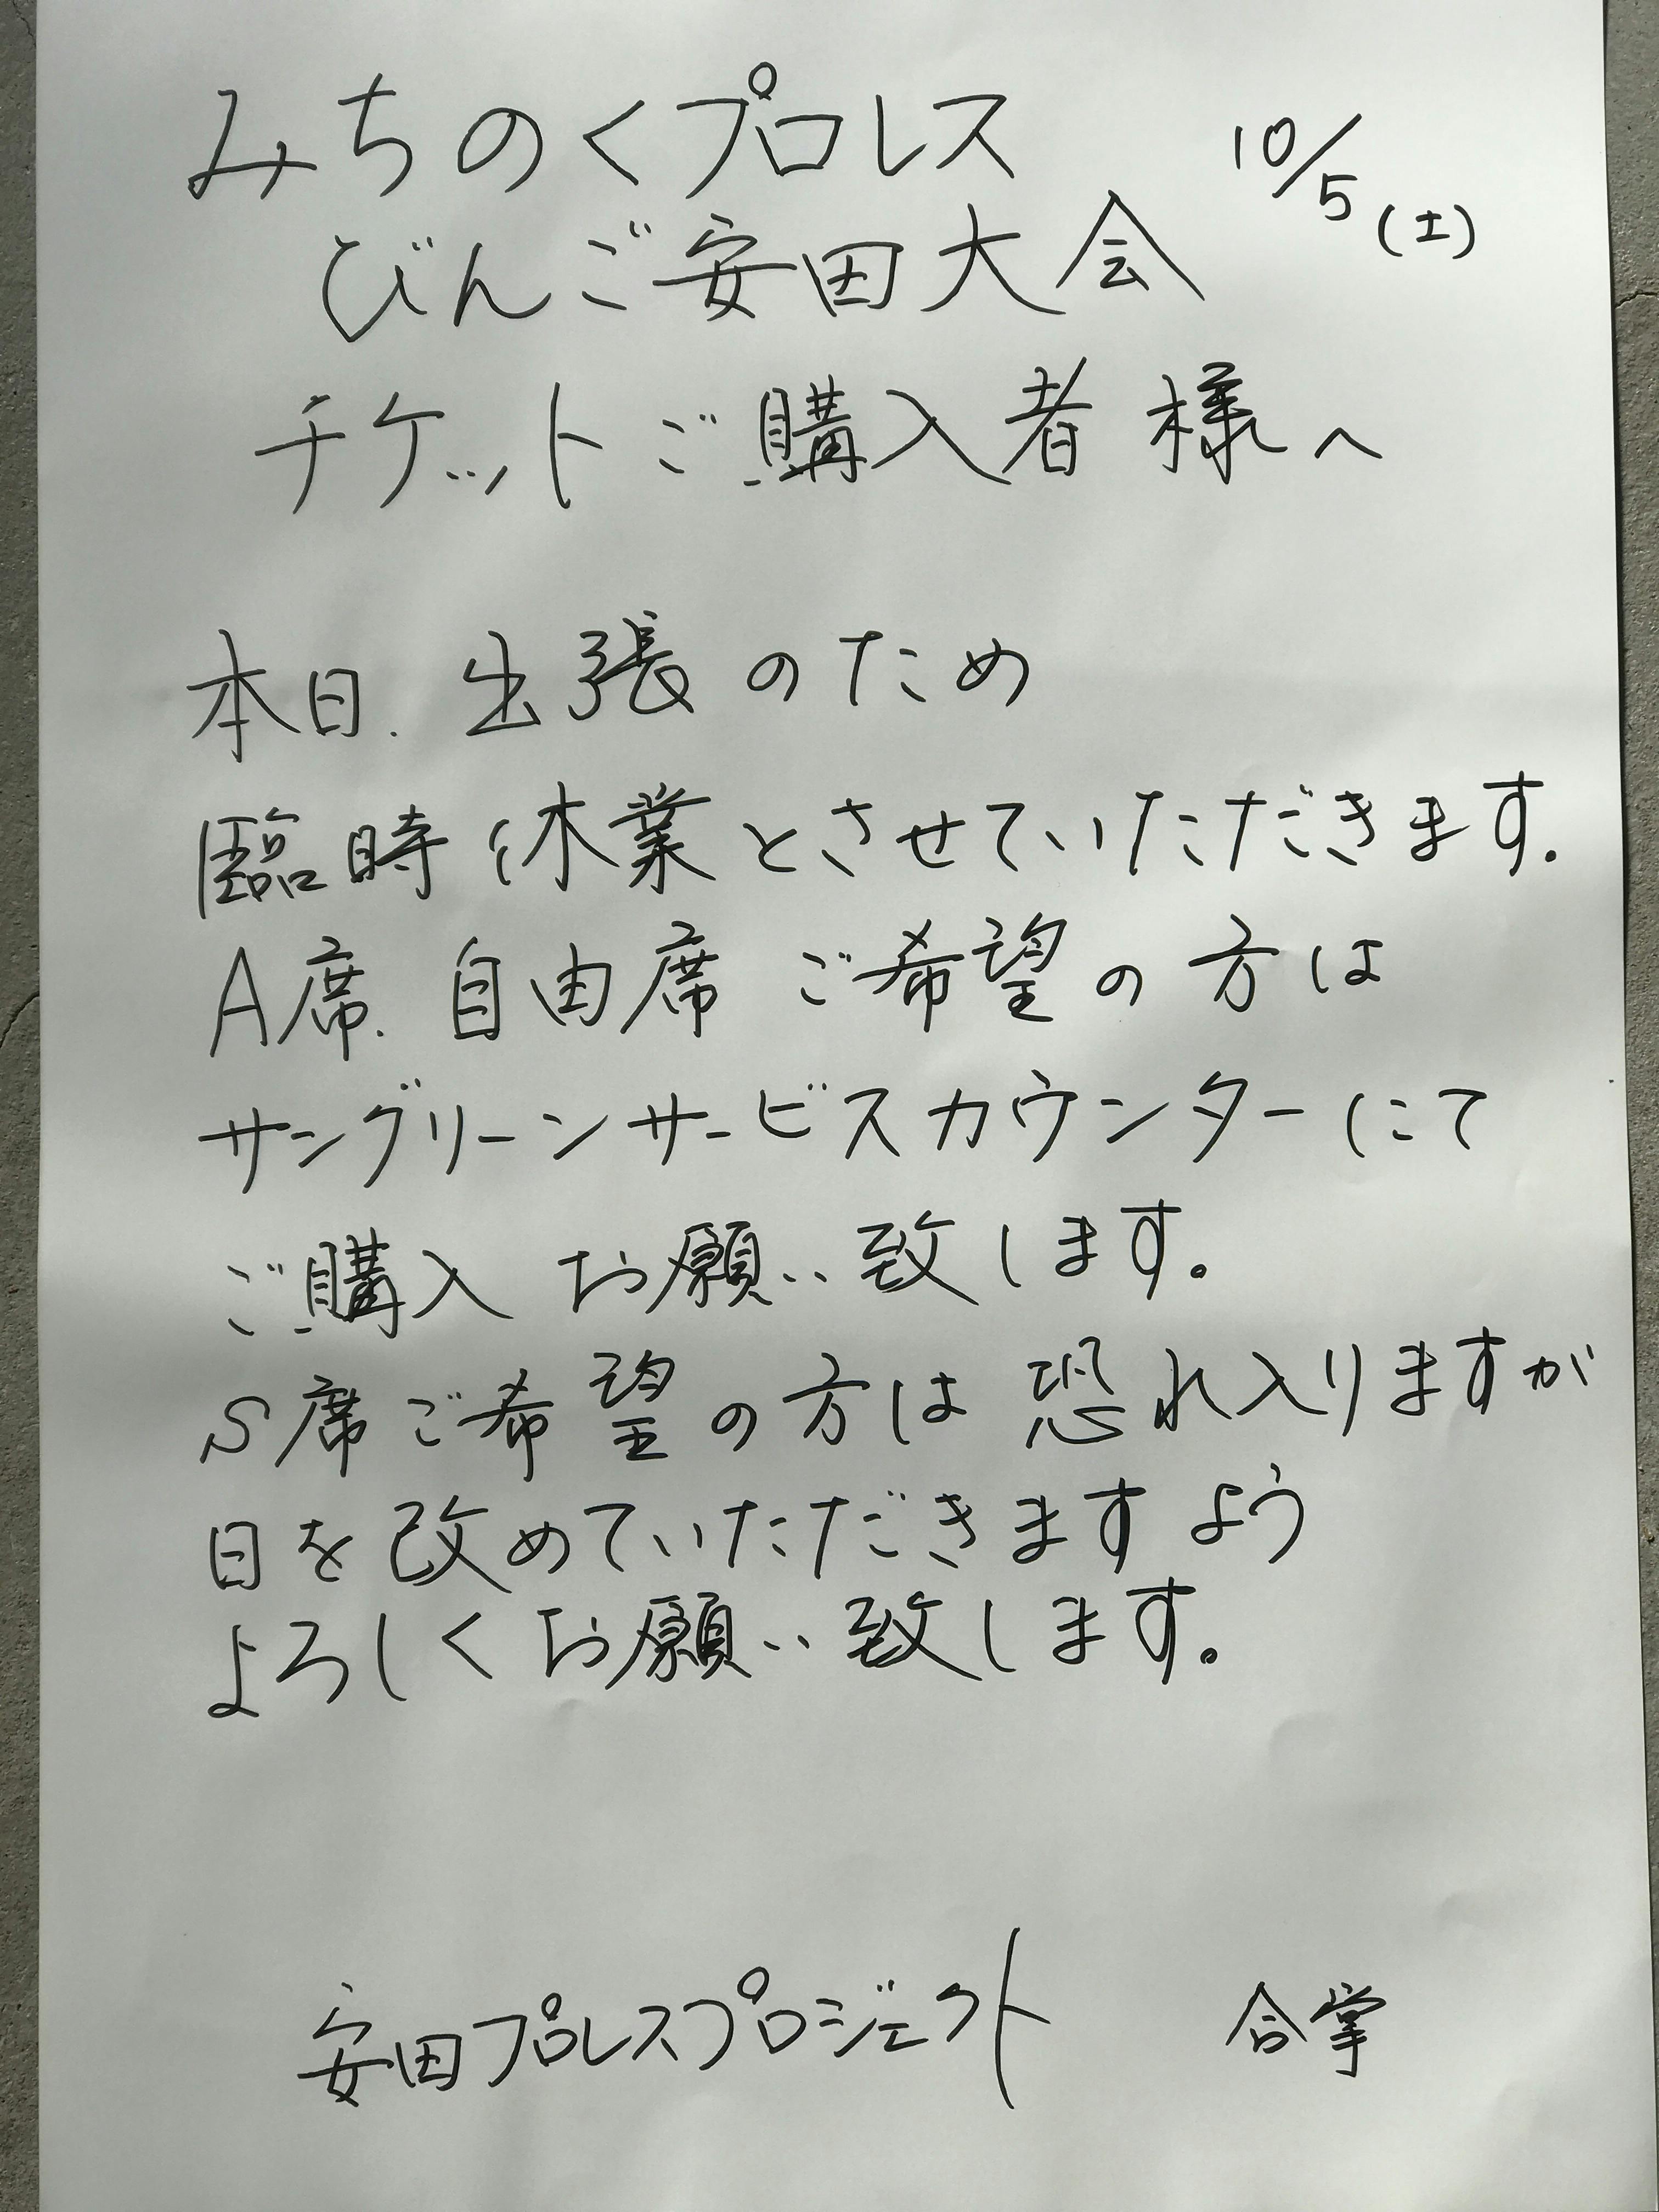 みちのくプロレス 10/5(土)
びんご安田大会
チケットご購入者様へ
本日、出張のため
臨時休業とさせていただきます。
A席、自由席ご希望の方は
サングリーンサービスカウンターにて
ご購入お願い致します。
S席ご希望の方は恐れ入りますが
日を改めていただきますよう
よろしくお願い致します。
安田プロレスプロジェクト 合掌